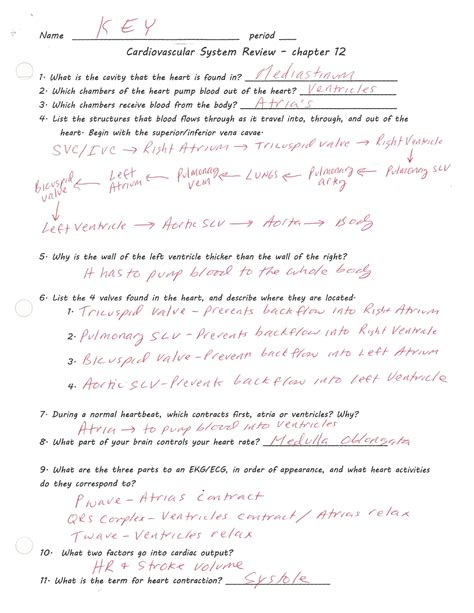 Name K E Y period
Cardiovascular System Review – chapter 12
1. What is the cavity that the heart is found in? Mediastinum
2. Which chambers of the heart pump blood out of the heart? Ventricles
3. Which chambers receive blood from the body? Atria's
4. List the structures that blood flows through as it travel into, through, and out of the
heart. Begin with the superior/inferior vena cavae.
SVC/IVC → Right Atrium → Tricuspid valve → Right Ventricle
Bicuspid valve ← Left Atrium ← Pulmonary vein ← LUNGS ← Pulmonary artry ← Pulmonary SLV
Left Ventricle → Aortic SLV → Aorta → Body
5. Why is the wall of the left ventricle thicker than the wall of the right?
It has to pump blood to the whole body
6. List the 4 valves found in the heart, and describe where they are located.
1. Tricuspid Valve - Prevents backflow into Right Atrium
2. Pulmonary SLV - Prevents backflow into Right Ventricle
3. Bicuspid Valve - Prevent backflow into Left Atrium
4. Aortic SLV - Prevents backflow into left Ventricle
7. During a normal heartbeat, which contracts first, atria or ventricles? Why?
Atria → to pump blood into ventricles
8. What part of your brain controls your heart rate? Medulla Oblongata
9. What are the three parts to an EKG/ECG, in order of appearance, and what heart activities
do they correspond to?
P wave - Atrias contract
QRS Complex - Ventricles contract / Atrias relax
T wave - Ventricles relax
10. What two factors go into cardiac output?
HR & Stroke volume
11. What is the term for heart contraction? Systole